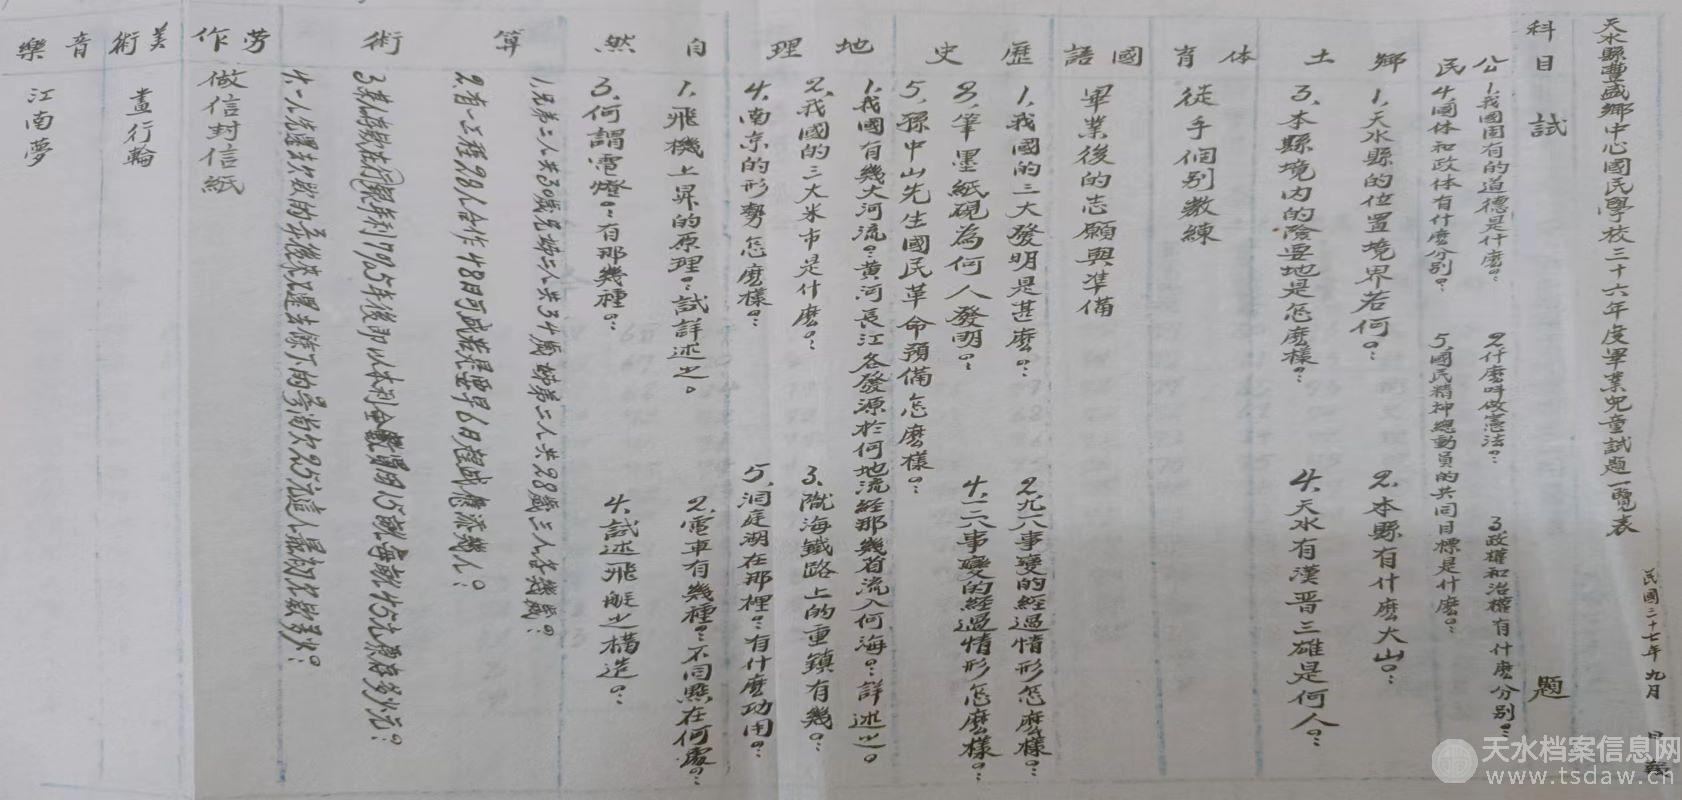 天水縣豐盛鄉中心國民學校三十六年度畢業兒童試題一覽表
民國三十七年九月 日
科目 試 題
公民
1.我國固有的道德是什麼？ 2.什麼叫做憲法？ 3.政權和治權有什麼分别？
4.國体和政体有什麼分别？ 5.國民精神總動員的共同目標是什麼？
鄉土
1.天水縣的位置境界若何？ 2.本縣有什麽大山？
3.本縣境内的險要地是怎麽樣？ 4.天水有漢晋三雄是何人？
体育
徒手個别教練
國語
畢業後的志願與準備
歷史
1.我國的三大發明是甚麽？ 2.九一八事變的經過情形怎麽樣？
3.筆墨紙硯為何人發明？ 4.一二八事變的經過情形怎麽樣？
5.孫中山先生國民革命預備怎麽樣？
地理
1.我國有幾大河流？黄河長江各發源於何地流經那幾省流入何海？詳述之。
2.我國的三大米市是什麽？ 3.隴海鐵路上的重鎮有幾？
4.南京的形勢怎麽樣？ 5.洞庭湖在那裡？有什麽功用？
自然
1.飛機上昇的原理？試詳述之。 2.電車有幾種？不同點在何處？
3.何謂電燈？有那幾種？ 4.試述飛艇之構造？
算術
1.兄弟二人共30歲兄姊二人共34歲姊弟二人共28歲三人各幾歲？
2.有一工程28人合作48日可成若是要早6日落成應添幾人？
3.某君款在銀行年利1925年後即以本利金數買田15畝每畝45元原有多少元？
4.一人先還去欠款的 後来又還去餘下的 尚欠25元這人最初欠款多少？
劳作
做信封信紙
美術
畫行輪
音樂
江南夢
天水档案信息网
www.tsdaw.cn